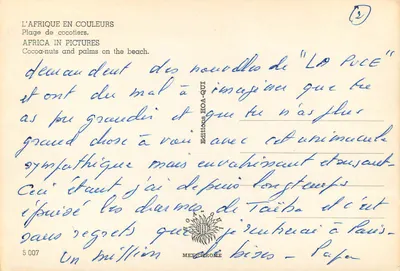 L'AFRIQUE EN COULEURS
Plage de cocotiers.
AFRICA IN PICTURES
Cocoa-nuts and palms on the beach.
2
demandent des nouvelles de "LA PUCE"
et ont du mal à imaginer que tu
as pu grandir et que tu n'as plus
grand chose à voir avec cet animacule
sympathique mais envahissant et
Ceci étant j'ai depuis longtemps
épuisé les charmes de Taïba et c'est
sans regrets que je rentrerai à Paris-
Un million de bises - Papa
Editions HOA-QUI
5 007